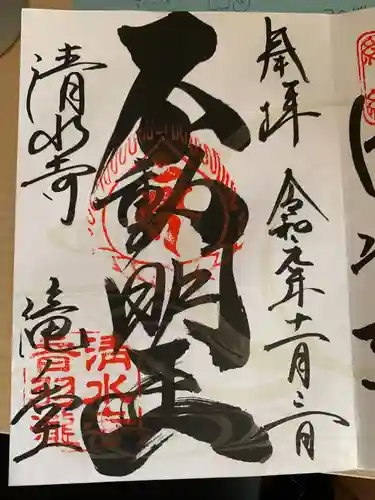 奉拝
令和元年十一月三日
不動明王
清水寺
滝ノ堂
清水寺
音羽瀧